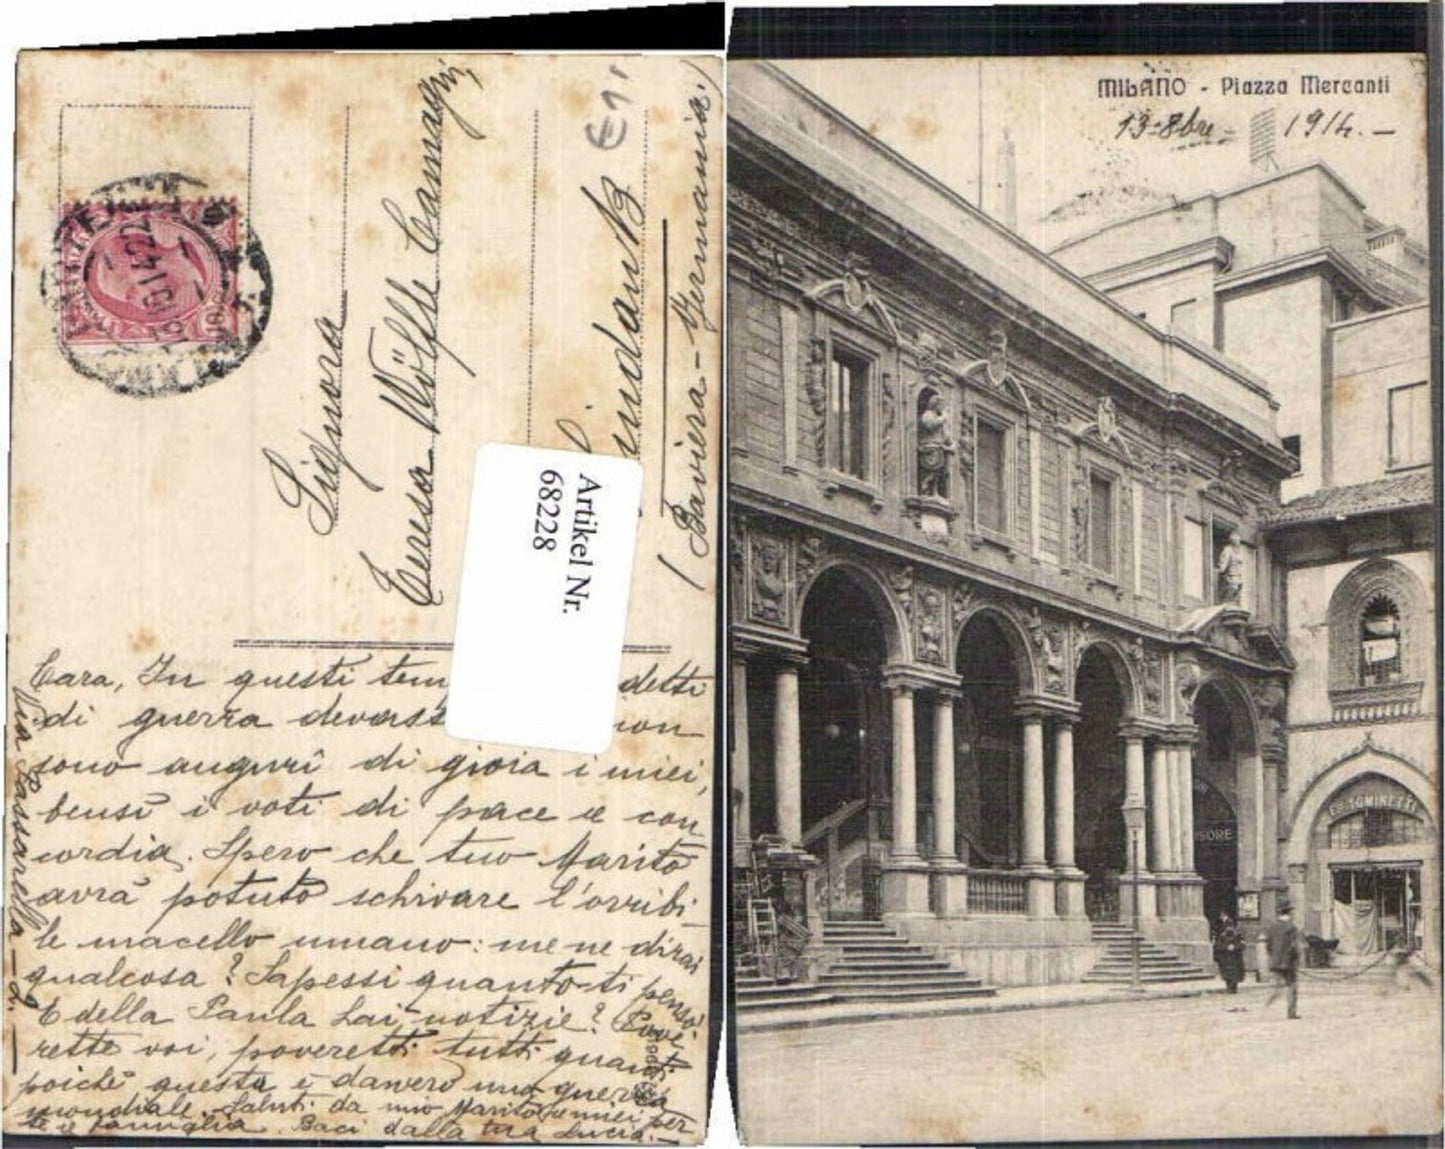 Signora
Teresa Wölfle Camagni,
Lindau i/B
(Baviera - Germania.)
Artikel Nr.
68228
Cara, In questi tem detti
di guerra devast non
sono auguri di gioia i miei,
bensì i voti di pace e con
cordia. Spero che tuo Marito
avrà potuto schivare l'orribi
le macello umano: me ne dirai
qualcosa? Sapessi quanto ti penso!
E della Paula hai notizie? Pove
rette voi, poveretti tutti quanti
poichè questa è davvero una guerra
mondiale. Saluti da mio Marito e miei per
te e famiglia. Baci dalla tua Lucia. -
Via Passarella - 2. -
MILANO - Piazza Mercanti
13-8bre - 1914. -
TOMINETTI
SORE